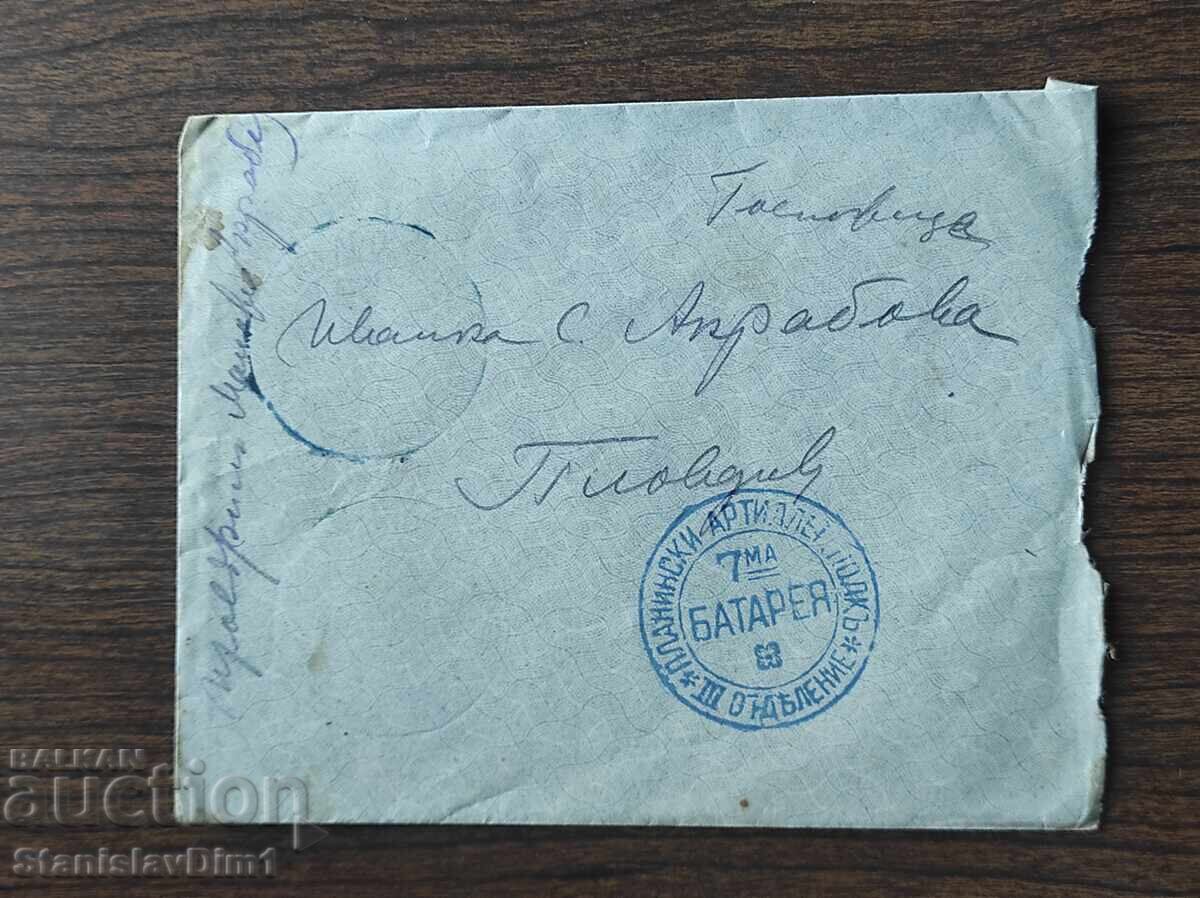 Госпожица
Иванка С. Андрабова
Пловдив
ПЛАНИНСКИ АРТИЛЕР. ПОЛКЪ
7МА
БАТАРЕЯ
III ОТДѢЛЕНИЕ
BALKAN
auction
StanislavDim1